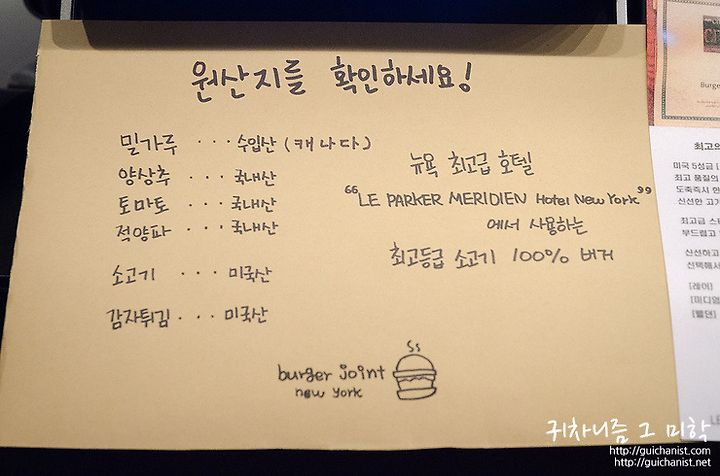 원산지를 확인하세요!
밀가루 ··· 수입산 (캐나다)
양상추 ··· 국내산
토마토 ··· 국내산
적양파 ··· 국내산
소고기 ··· 미국산
감자튀김 ··· 미국산
뉴욕 최고급 호텔
"LE PARKER MERIDIEN Hotel New York"
에서 사용하는
최고등급 소고기 100% 버거
burger joint
new york
Burge
최고의
미국 5성급
최고 품질의
도축즉시
신선한 고기
최고급
부드럽고
신선하고
선택해서
[레어]
[미디엄
[웰던]
LE
귀차니즘 그 미학
http://guichanist.com
http://guichanist.net